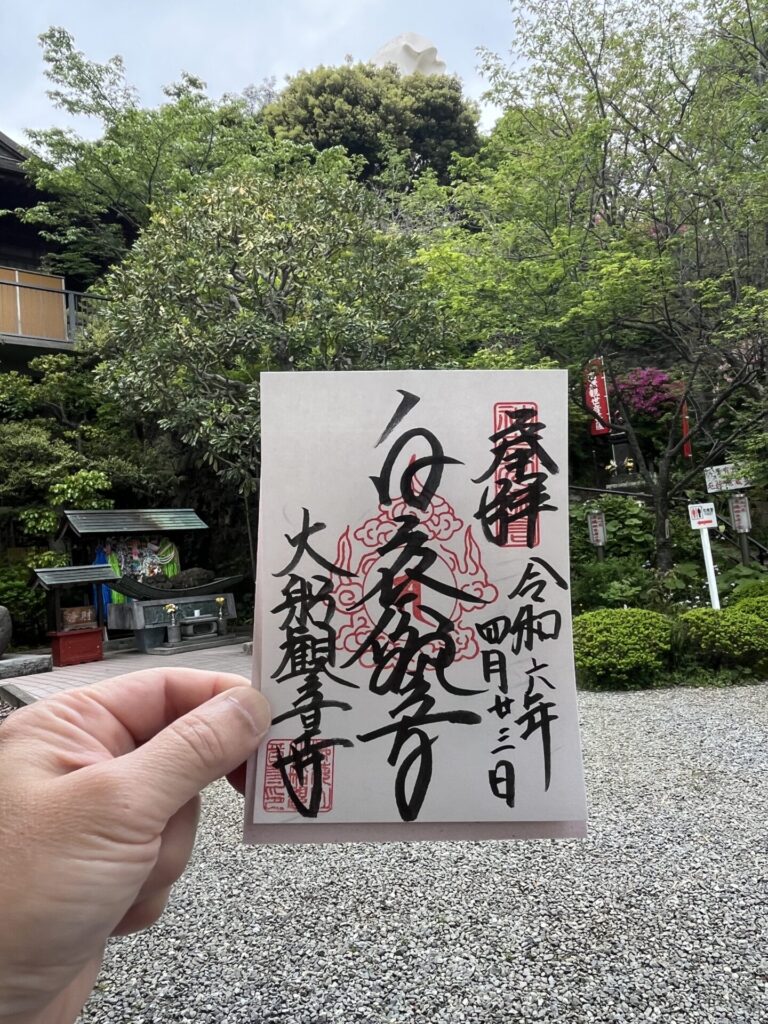 奉拝
令和六年
四月廿三日
白衣觀音
大船觀音寺